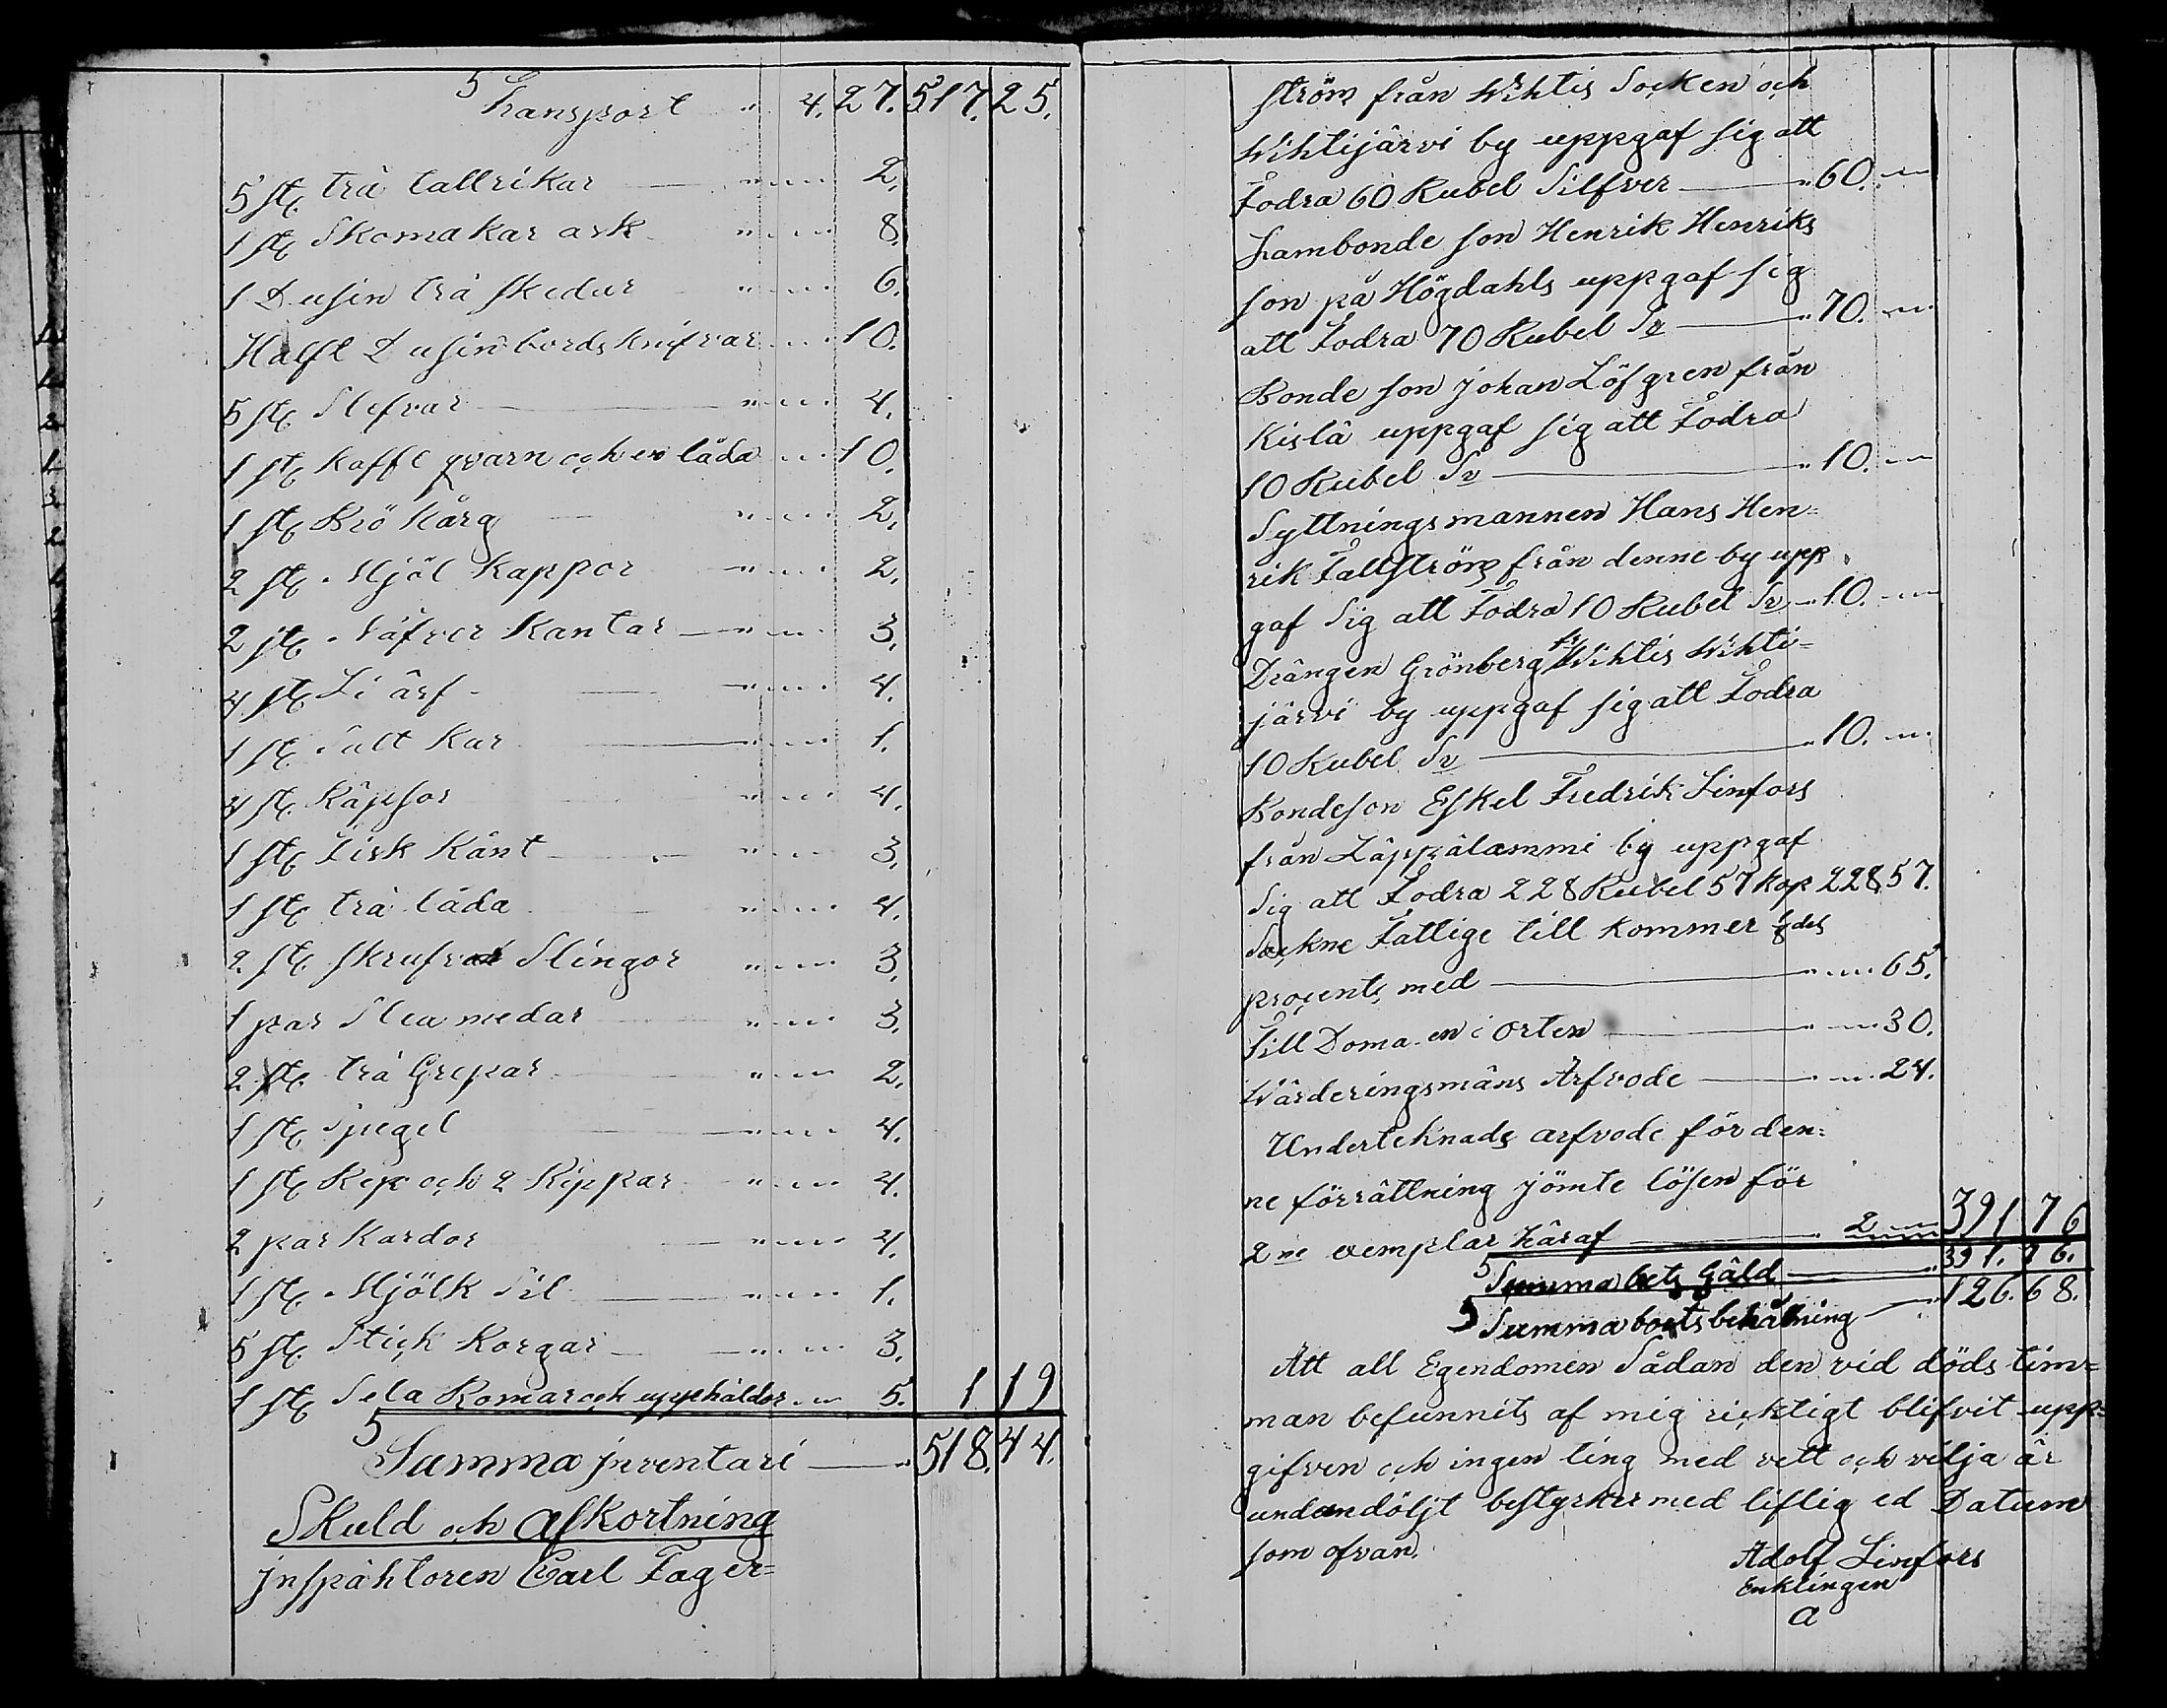 Transport " 4. 27. 517. 25.
5 st. trä tallrikar " " " 2.
1 st. Skomakar ask " " " 8.
1 Dusin trä skedar " " " 6.
Halft Dusin bords knifvar " " 10.
5 st. Slefvar " " " 4.
1 st. Kaffe qvarn och en låda " " 10.
1 st. Brö kårg " " " 2.
2 st. Mjöl Kappor " " " 2.
2 st. Näfver Kantar " " " 3.
4 st. Li ârf " " " 4.
1 st. Salt Kar " " " 1.
4 st. Räpsor " " " 4.
1 st. Fisk Kânt " " " 3.
1 st. trä låda " " " 4.
2 st. skrufvar Slingor " " " 3.
1 par Slea medar " " " 3.
2 st. trä Grepar " " " 2.
1 st. Spegel " " " 4.
1 st. Rep och 2 Kippar " " " 4.
2 par Kardor " " " 4.
1 st. Mjölk Sil " " " 1.
5 st. Stick Korgar " " " 3.
1 st. Sela Romar och upphäldor " " 5. 1 19
Summa jnventari " 518. 44.
Skuld och Afkortning
jnspâhtoren Carl Fager=
ström från Wihtis Socken och
Wihtijärvi by uppgaf sig att
Fodra 60 Rubel Silfver " 60. "
Lambonde son Henrik Henriks
son på Högdahls uppgaf sig
att Fodra 70 Rubel Sr " 70. "
Bonde son Johan Löfgren från
Kislâ uppgaf sig att Fodra
10 Rubel Sr " 10. "
Syttningsmannen Hans Hen=
rik Fallström från denne by upp
gaf Sig att Fodra 10 Rubel Sr " 10. "
Drängen Grönberg fr Wihtis Wihti=
järvi by uppgaf sig att Fodra
10 Rubel Sr " 10. "
Bondeson Eskel Fredrik Linfors
från Läppâlammi by uppgaf
Sig att Fodra 228 Rubel 57 kop 228 57.
Sockne Fattige till kommer 1/8 dels
procents med " " 65.
Till Doma-en i orten " " 30.
Wârderingsmâns Arfvode " " 24.
Underteknads arfvode för den=
ne förrâttning jömte lösen för
2ne exemplar hâraf " 2 " 391 76
Summa bets Gâld " 391. 76.
Summa boets behålning " 126. 68.
Att all Egendomen Sådan den vid döds tim=
man befunnits af mig ricktigt blifvit upp=
gifven och ingen ting med vett och vilja är
undandöljt bestyrker med liflig ed Datum
som ofvan.
Adolf Linfors
Enklingen
a